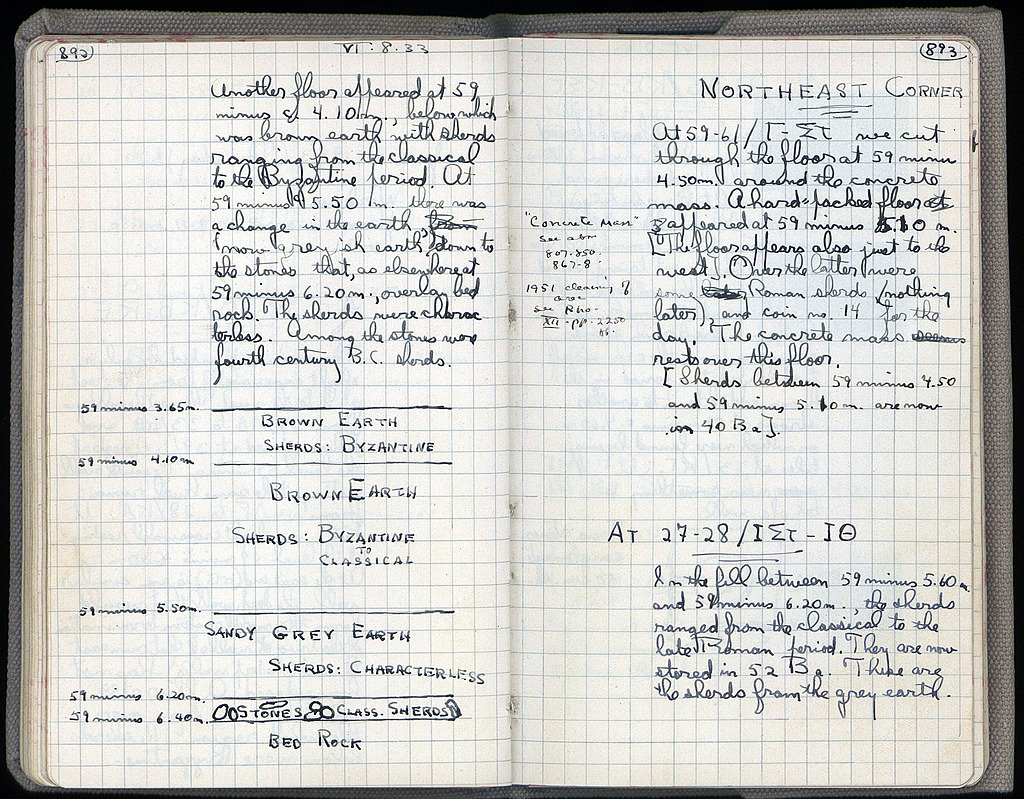 892
VI : 8.33
Another floor appeared at 59
minus 4.10 m., below which
was brown earth with sherds
ranging from the classical
to the Byzantine period. At
59 minus 5.50 m. there was
a change in the earth,
(now greyish earth, down to
the stones that, as elsewhere at
59 minus 6.20 m., overlay bed
rock. The sherds were charac
terless. Among the stones were
fourth century B.C. sherds.
59 minus 3.65 m.
BROWN EARTH
SHERDS: BYZANTINE
59 minus 4.10 m
BROWN EARTH
SHERDS: BYZANTINE
TO
CLASSICAL
59 minus 5.50 m.
SANDY GREY EARTH
SHERDS: CHARACTERLESS
59 minus 6.20 m.
STONES CLASS. SHERDS
59 minus 6.40 m.
BED ROCK
893
NORTHEAST CORNER
At 59-61/Γ-ΣΤ we cut
through the floor at 59 minus
4.50 m. around the concrete
mass. A hard-packed floor
appeared at 59 minus 5.10 m.
[The floor appears also just to the
west]. Over the latter were
some Roman sherds (nothing
later), and coin no. 14 for the
day. The concrete mass
rests over this floor.
[Sherds between 59 minus 4.50
and 59 minus 5.10 m. are now
in 40 Ba].
"Concrete Mass"
see
807-850
867-8
1951 cleaning of
area
see Rho-
XII - pp. 2250
ff.
AT 27-28/ΙΣΤ-ΙΘ
In the fill between 59 minus 5.60 m.
and 59 minus 6.20 m., the sherds
ranged from the classical to the
late Roman period. They are now
stored in 52 Ba. These are
the sherds from the grey earth.